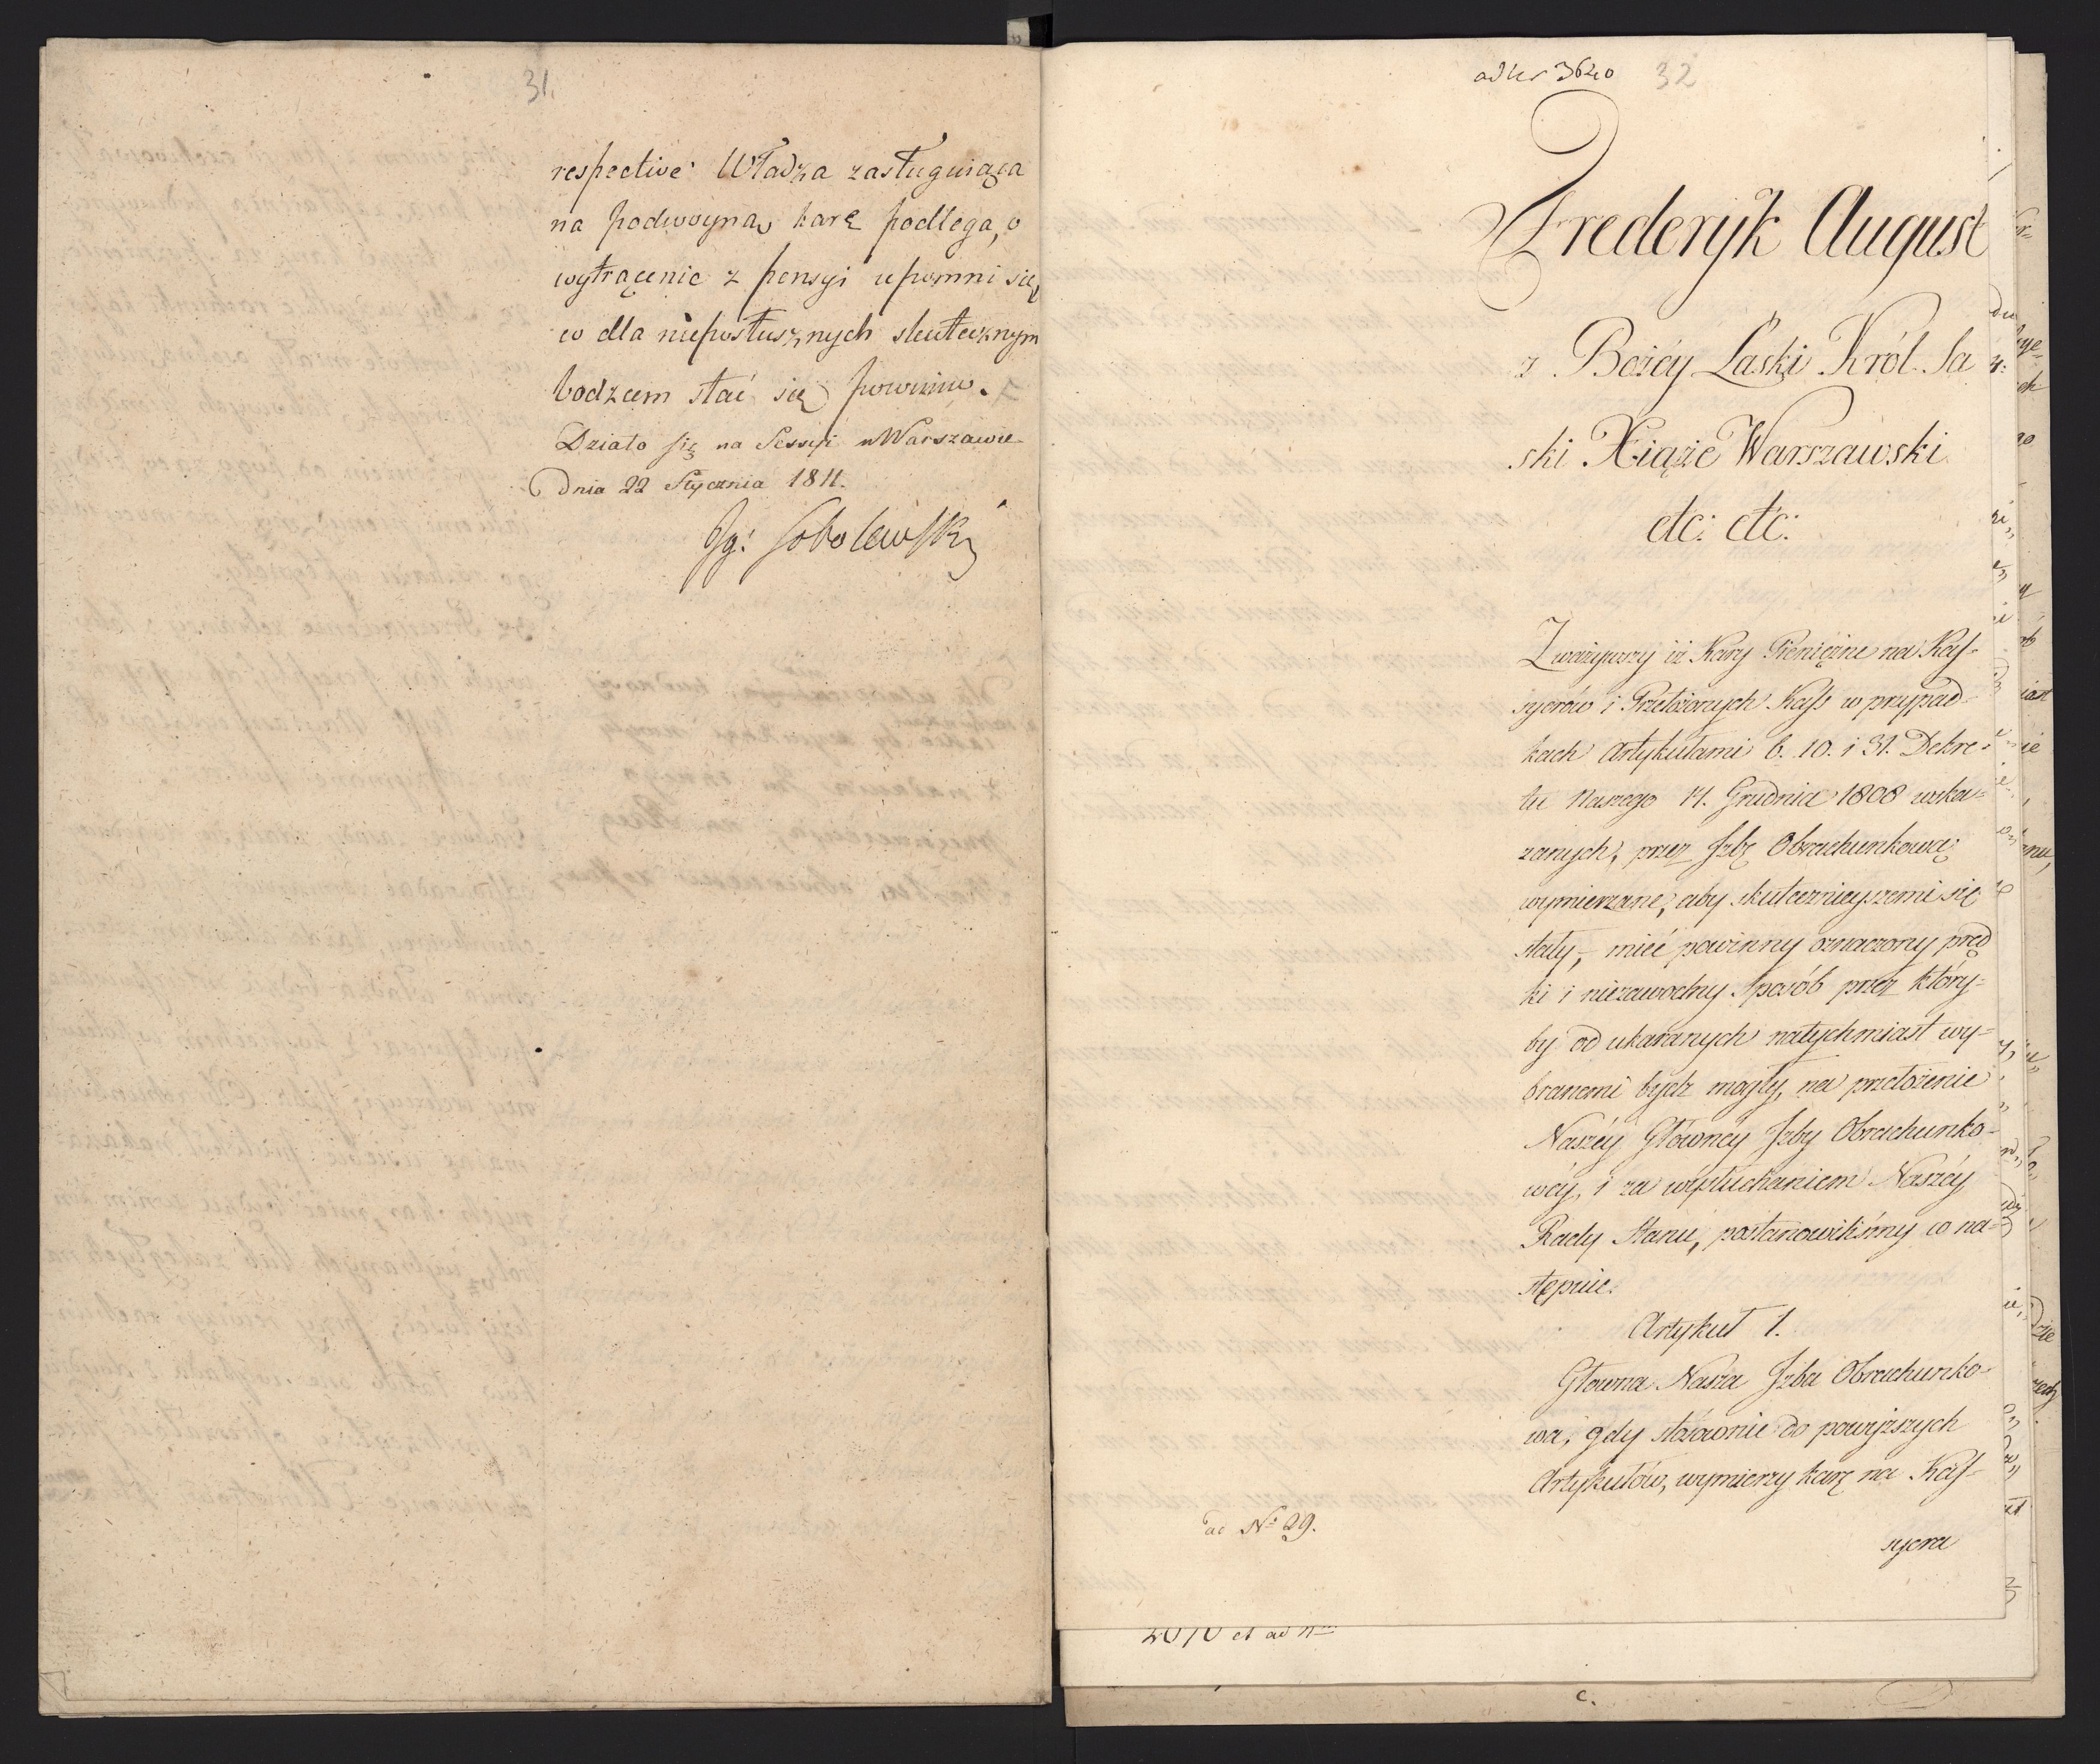 31.
respective Władza zasługuiąca
na podwoyną karę podlega, o
wytrącenie z pensyi upomni się,
co dla nieposłusznych skutecznym
bodzcem stać się powinno.
Działo się na Sessyi w Warszawie
Dnia 22 Stycznia 1811.
Jg: Sobolewski
ad Nr 3640 32
Frederyk August
z Bożéy Łaski Król Sa
ski Xiąże Warszawski
etc: etc:
Zważywszy iż Kary Pieniężne na Kas-
syerów i Przełożonych Kass w przypad-
kach Artykułami 6. 10. i 31. Dekre-
tu Naszego 14. Grudnia 1808 wska-
zanych, przez Jzbę Obrachunkową
wymierzane, aby skutecznieyszemi się
stały, mieć powinny oznaczony pręd
ki i niezawodny Sposób przez który-
by od ukaranych natychmiast wy-
branemi bydz mogły, na przełożenie
Naszéy Głównéy Jzby Obrachunko-
wéy, i za wysłuchaniem Naszéy
Rady Stanu, postanowiliśmy co na-
stępuie.
Artykuł 1.
Głowna Nasza Jzba Obrachunko-
wa, gdy stosownie do powyższych
Artykułów, wymierzy karę na Kas-
syera
ad No 29.
et ad
c.